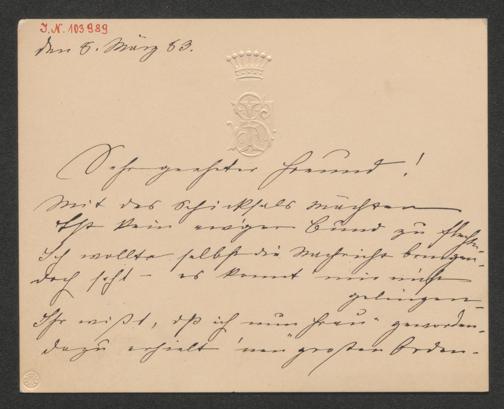 I.N. 103989
den 8. März 83.
Sehr geehrter Freund!
Mit des Schicksals Mächten
Ist kein ewger Bund zu flechten
Ich wollte selbst die Nachricht bringen
doch seht – es konnt mir nicht
gelingen –
Ihr wißt, daß ich nun Frau geworden
dazu erhielt nen großen Orden –